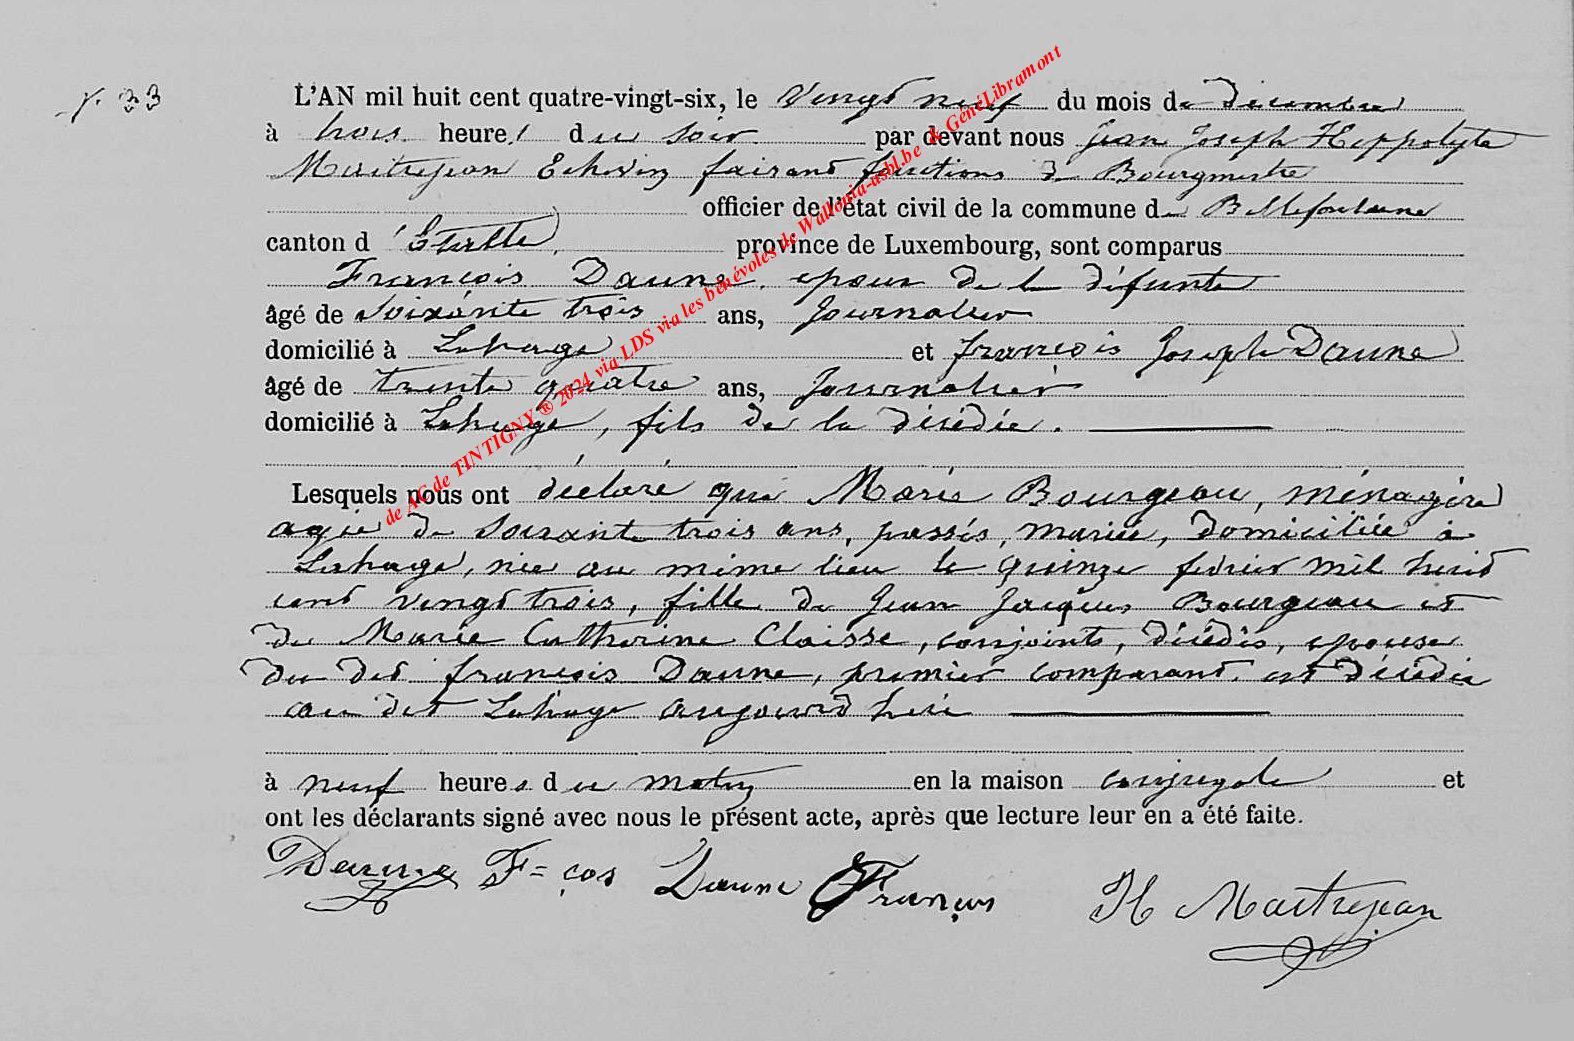 N° 33
L'AN mil huit cent quatre-vingt-six, le Vingt neuf du mois de décembre
à trois heures du soir par devant nous Jean Joseph Hyppolyte
Maitrejean Echevin faisant fonctions de Bourgmestre
officier de l'état civil de la commune de Bellefontaine
canton d'Etalle, province de Luxembourg, sont comparus
François Daune, epoux de la défunte
âgé de soixante trois ans, Journalier
domicilié à Lahage et françois Joseph Daune
âgé de trente quatre ans, Journalier
domicilié à Lahage, fils de la décédée.
Lesquels nous ont déclaré que Marie Bourgeau, ménagère
agée de soixante trois ans, passés, mariée, domiciliée à
Lahage, née au même lieu le quinze fevrier mil huit
cent vingt trois, fille de Jean Jacques Bourgeau et
de Marie Catherine Claisse, conjoints, décédés, epouse
du dit françois Daune, premier comparant, est décédée
au dit Lahage aujourd'hui
à neuf heures du matin en la maison conjugale et
ont les déclarants signé avec nous le présent acte, après que lecture leur en a été faite.
Daune F=ços Daune François H Maitrejean
de AC de TINTIGNY ® 2024 via LDS via les bénévoles de Wallonia-asbl.be & GénéLibramont